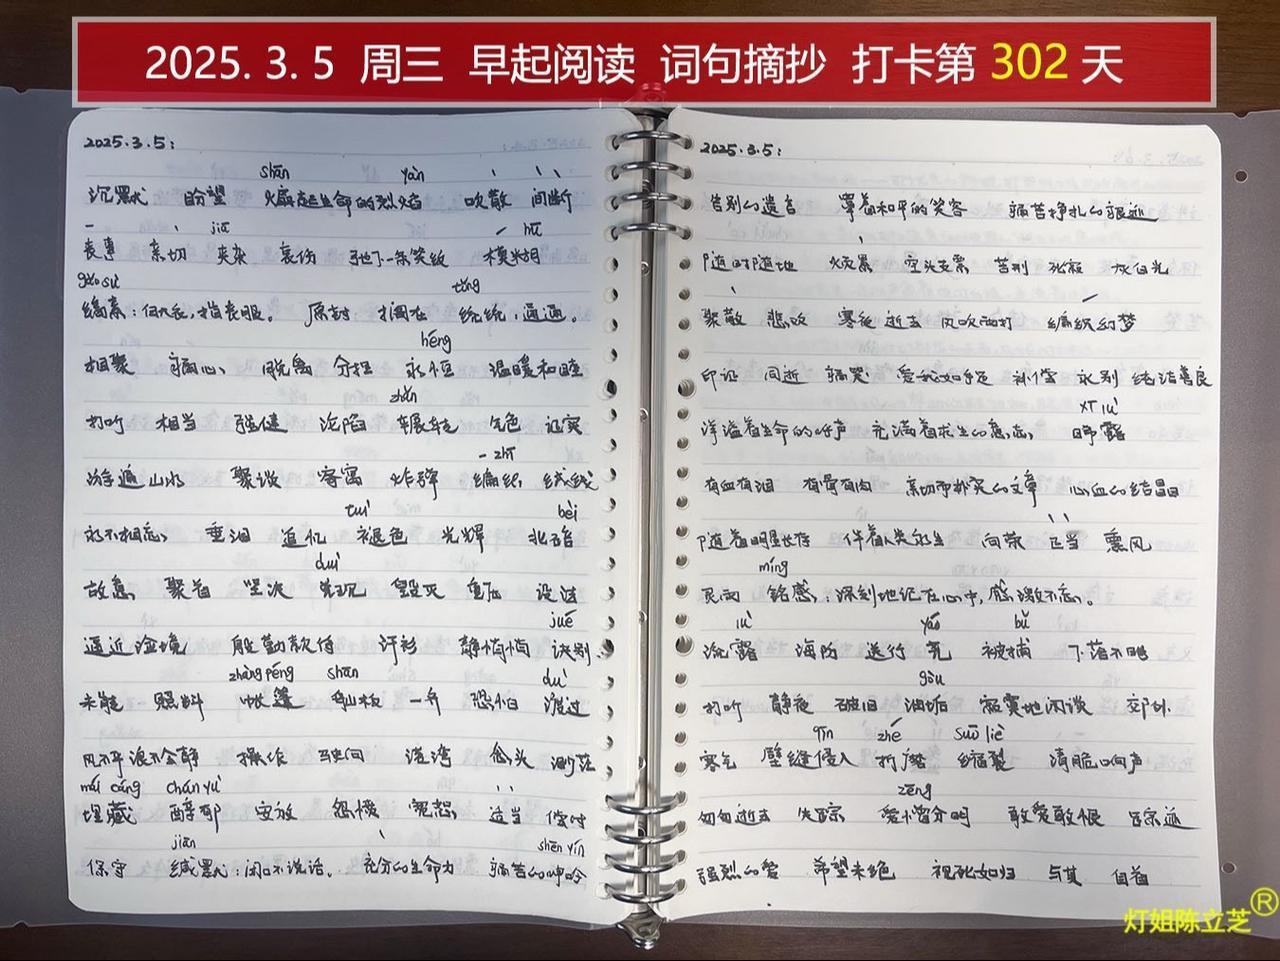 2025. 3. 5 周三 早起阅读 词句摘抄 打卡第 302 天
2025.3.5:
shān yàn
沉默 盼望 煽起生命的烈焰 吹散 间断
jiā hū
丧事 亲切 夹杂 哀伤 弛下一条笑纹 模糊
gǎo sù tǒng
缟素:白衣,指丧服。 原封 捐在 统统:通通。
héng
相聚 痛心 脱离 分担 永恒 温暖和睦
zhǎn
打听 相当 强健 沦陷 辗转 气色 证实
zhī
游遍山水 聚谈 客寓 炸弹 编织 线
tuì bèi
永不相忘 垂泪 追忆 褪色 光辉 北碚
duì
故意 聚着 坚决 兑现 毁灭 重压 设法
jué
逼近 洽境 殷勤款待 汗衫 静悄悄 诀别
zhàng péng shān dù
未能 照料 帐篷 舢板 一齐 恐怕 渡过
风平浪不会静 操作 驶向 港湾 念头 渺茫
mái cáng chán yú
埋藏 安放 怨恨 宽恕 适当 偿付
jiān shēn yín
保守 缄默:闭口不说话。 充分的生命力 痛苦的呻吟
2025.3.5:
告别的遗言 罩着和平的笑容 痛苦挣扎的痕迹
随时随地 空头支票 苦刑 死寂 灰白光
聚散 悲欢 寒夜 逝去 风吹雨打 编织幻梦
印证 间逝 痛哭 爱我如手足 补偿 永别 纯洁善良
xī lù
洋溢着生命的呼声 充满着求生的意志 晞露
有血有泪 有骨有肉 亲切而朴实的文章 心血的结晶
随着明星长存 伴着人类永生 向荣 正当 熏风
míng
灵雨 铭感:深刻地记在心中,感激不忘。
lù yào bǔ
沉露 海防 送行 被捕 下落不明
gòu
打听 静夜 破旧 油垢 寂寞地闲谈 郊外
qīn zhé suō liè
寒气 壁缝侵入 折磨 缩裂 清脆响声
zēng
匆匆逝去 失踪 爱憎分明 敢爱敢恨 无踪迹
强烈的爱 希望未绝 视死如归 与其 自首
灯姐陈立芝®